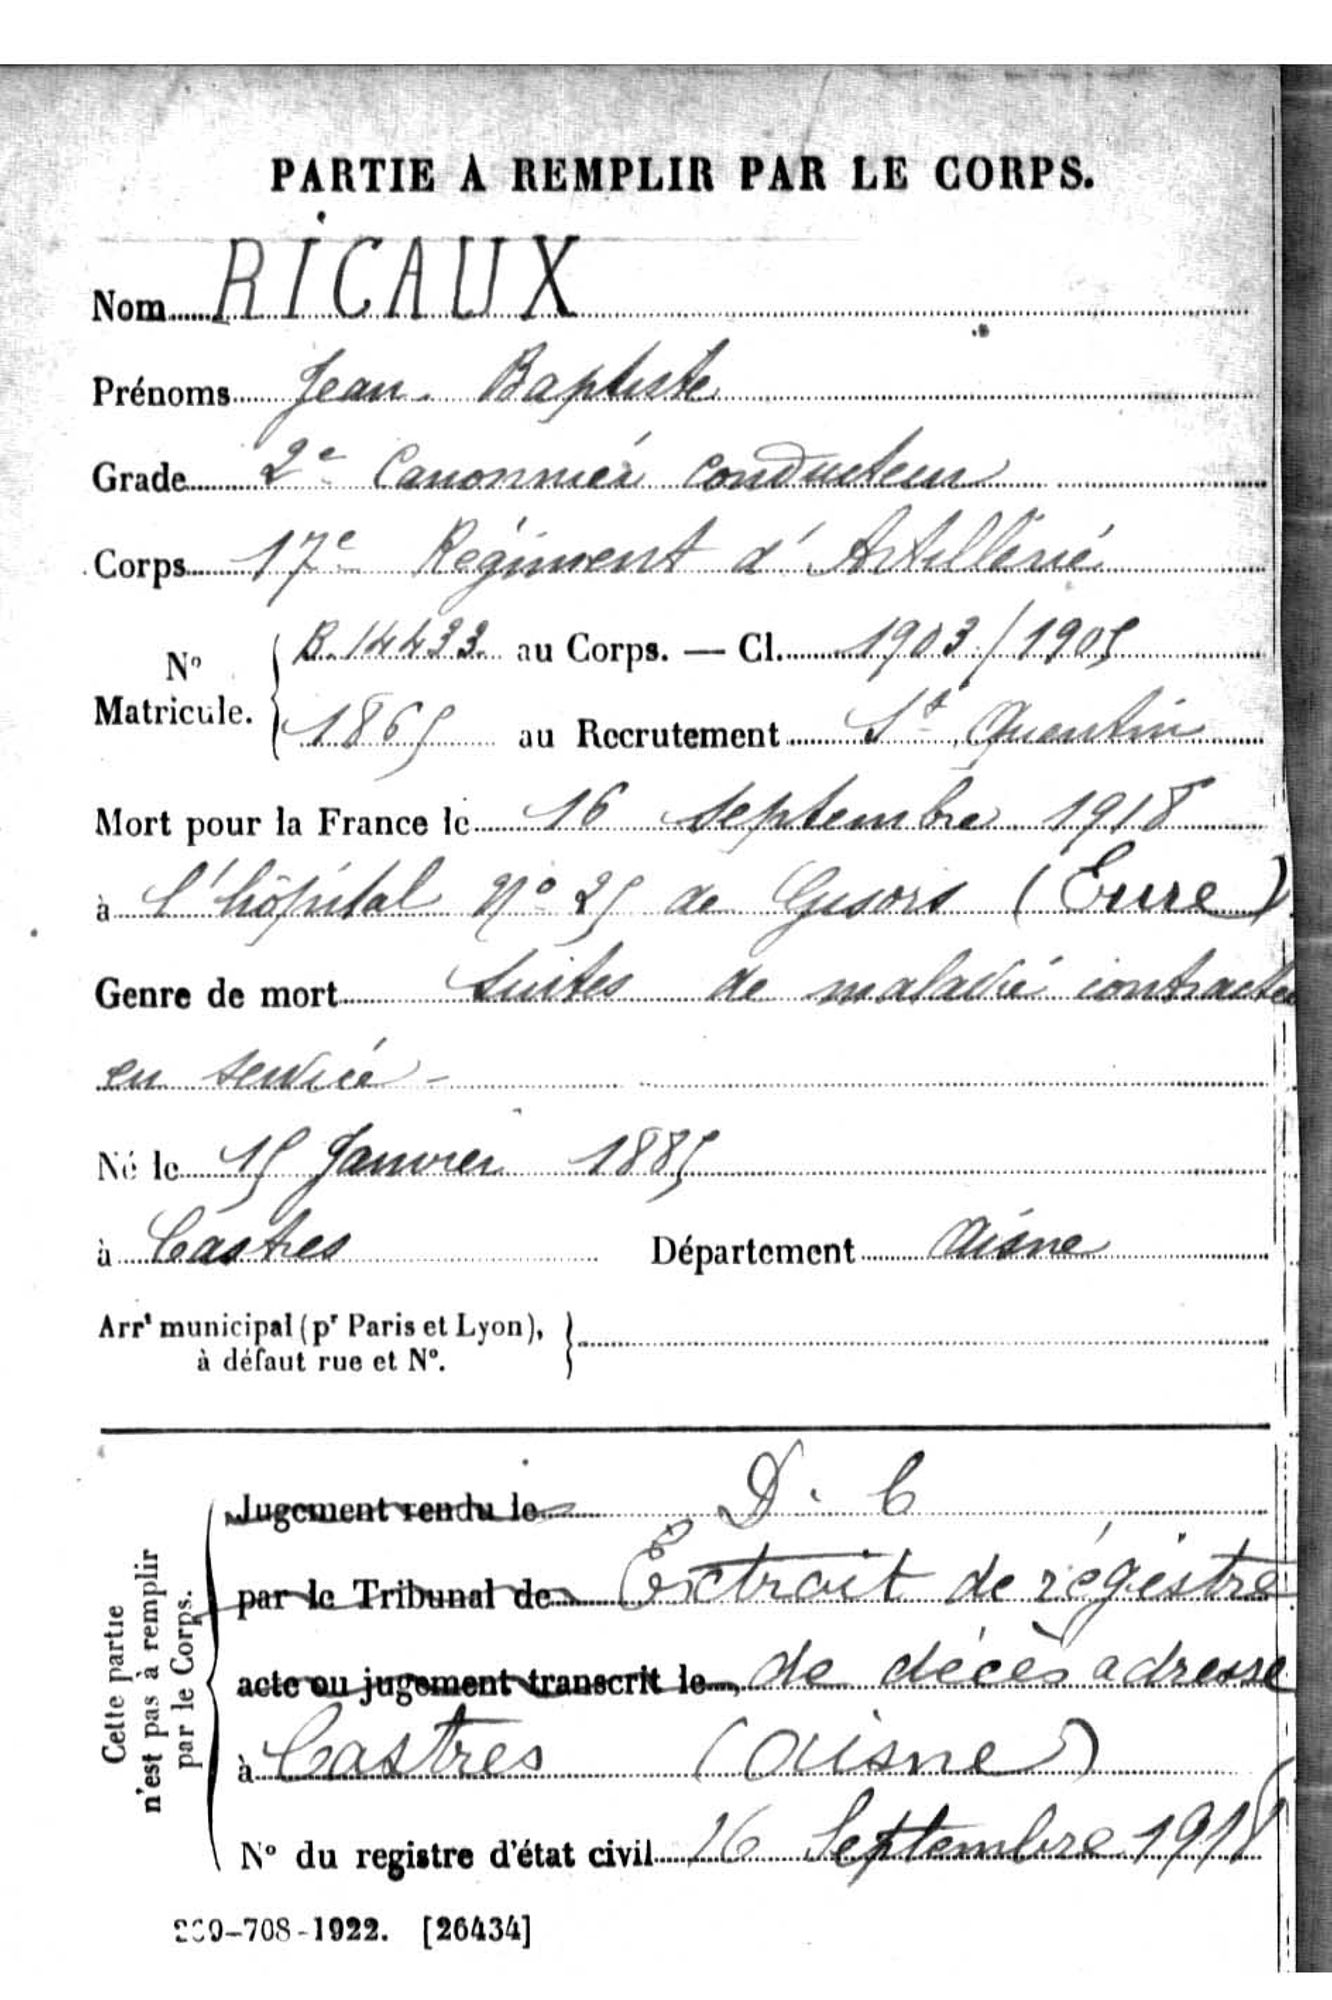 PARTIE À REMPLIR PAR LE CORPS.
Nom RICAUX
Prénoms Jean Baptiste
Grade 2e Canonnier conducteur
Corps 17e Régiment d'Artillerie
No Matricule. { B.14433 au Corps. — Cl. 1903/1905
1865 au Recrutement St Quentin
Mort pour la France le 16 septembre 1918
à l'hôpital No 25 de Gisors (Eure)
Genre de mort suites de maladie contractée
en service -
Né le 15 Janvier 1885
à Castres Département Aisne
Arrt municipal (pr Paris et Lyon),
à défaut rue et No.
Cette partie
n'est pas à remplir
par le Corps.
Jugement rendu le D. C
par le Tribunal de Extrait de régistre
acte ou jugement transcrit le de décès adressé
à Castres (Aisne)
No du registre d'état civil 16 Septembre 1918
-708-1922. [26434]